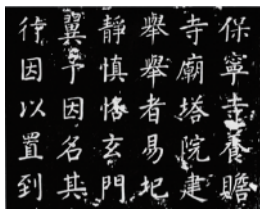 保寧寺養贍
寺廟塔院建
舉舉者易圮
靜慎恪玄門
翼予因名其
待因以置到